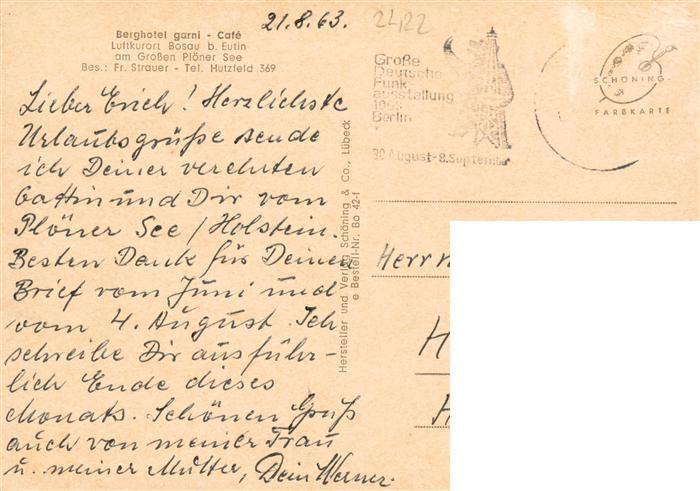 21.8.63.
22,22
Berghotel garni - Café
Luftkurort Bosau b. Eutin
am Großen Plöner See
Bes.: Fr. Strauer - Tel. Hutzfeld 369
Lieber Erich! Herzlichste
Urlaubsgrüße sende
ich Deiner verehrten
Gattin und Dir vom
Plöner See / Holstein.
Besten Dank für Deinen
Brief vom Juni und
vom 4. August. Ich
schreibe Dir ausführ-
lich Ende dieses
Monats. Schönen Gruß
auch von meiner Frau
u. meiner Mutter, Dein Werner.
Hersteller und Verlag Schöning & Co., Lübeck
e Bestell-Nr. Bo 42-f
Große
Deutsche
Funk
ausstellung
1963
Berlin
30 August - 8. September
SCHÖNING
FARBKARTE
Herrn
H
H